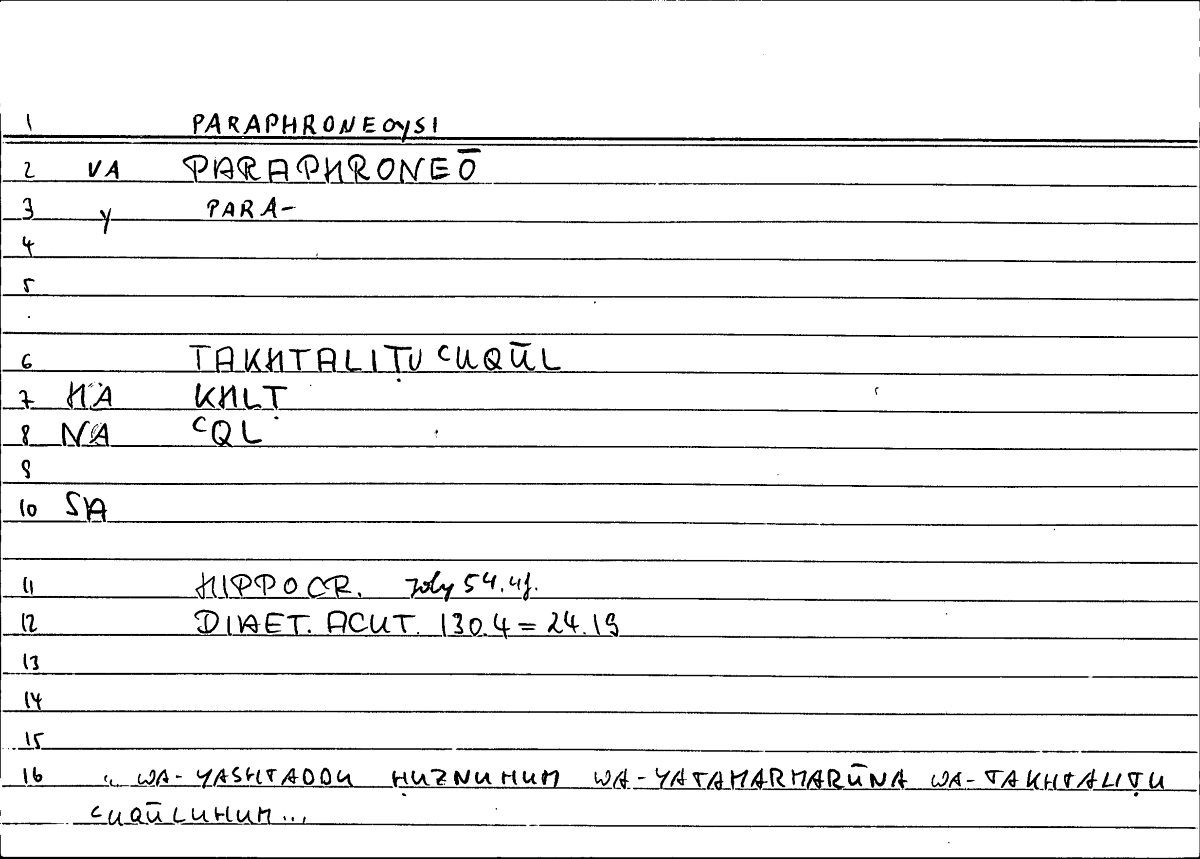 1 PARAPHRONEOYSI
2 VA PARAPHRONEŌ
3 Y PARA-
4
5
.
6 TAKHTALIṬU ʿUQŪL
7 HA KHLṬ
8 NA ʿQL
9
10 SA
11 HIPPOCR. Joly 54.4f.
12 DIAET. ACUT. 130.4 = 24.19
13
14
15
16 „ WA-YASHTADDU ḤUZNUHUM WA-YATAMARMARŪNA WA-TAKHTALIṬU
ʿUQŪLUHUM...